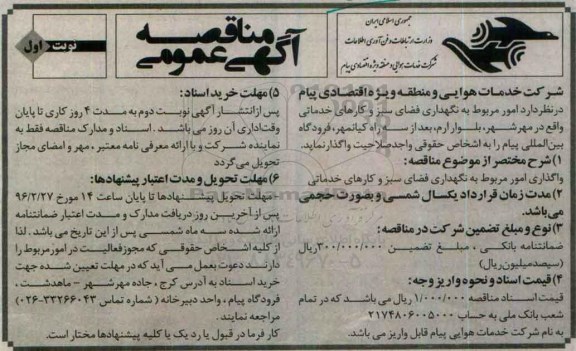 جمهوری اسلامی ایران
وزارت ارتباطات و فن آوری اطلاعات
شرکت خدمات هوایی و منطقه ویژه اقتصادی پیام
آگهی مناقصه عمومی
نوبت اول
شرکت خدمات هوایی و منطقه ویژه اقتصادی پیام
درنظر دارد امور مربوط به نگهداری فضای سبز و کارهای خدماتی
واقع در مهرشهر، بلوار ارم، بعد از سه راه کیانمهر، فرودگاه
بین المللی پیام را به اشخاص حقوقی واجد صلاحیت واگذار نماید.
۱) شرح مختصر از موضوع مناقصه:
واگذاری امور مربوط به نگهداری فضای سبز و کارهای خدماتی
۲) مدت زمان قرارداد یکسال شمسی و بصورت حجمی
می باشد.
۳) نوع و مبلغ تضمین شرکت در مناقصه:
ضمانتنامه بانکی ، مبلغ تضمین ۳۰۰/۰۰۰/۰۰۰ ریال
(سیصد میلیون ریال)
۴) قیمت اسناد و نحوه واریز وجه:
قیمت اسناد مناقصه ۱/۰۰۰/۰۰۰ ریال می باشد که در تمام
شعب بانک ملی به حساب ۲۱۷۴۸۰۶۰۰۵۰۰۰
به نام شرکت خدمات هوایی پیام قابل واریز می باشد.
۵) مهلت خرید اسناد:
پس از انتشار آگهی نوبت دوم به مدت ۴ روز کاری تا پایان
وقت اداری آن روز می باشد . اسناد و مدارک مناقصه فقط به
نماینده شرکت و با ارائه معرفی نامه معتبر ، مهر و امضای مجاز
تحویل می گردد
۶) مهلت تحویل و مدت اعتبار پیشنهادها:
مهلت تحویل پیشنهادها تا پایان ساعت ۱۴ مورخ ۹۶/۳/۲۷
پس از آخرین روز دریافت مدارک و مدت اعتبار ضمانتنامه
ارائه شده سه ماه شمسی پس از این تاریخ می باشد . لذا
از کلیه اشخاص حقوقی که مجوز فعالیت در امور مربوط را
دارند دعوت بعمل می آید که در مهلت تعیین شده جهت
خرید اسناد به آدرس کرج ، جاده مهرشهر - ماهدشت ،
فرودگاه پیام ، واحد دبیرخانه ( شماره تماس ۳۳۲۶۶۰۴۳-۰۲۶)
مراجعه نمایند .
کارفرما در قبول یا رد یک یا کلیه پیشنهادها مختار است.